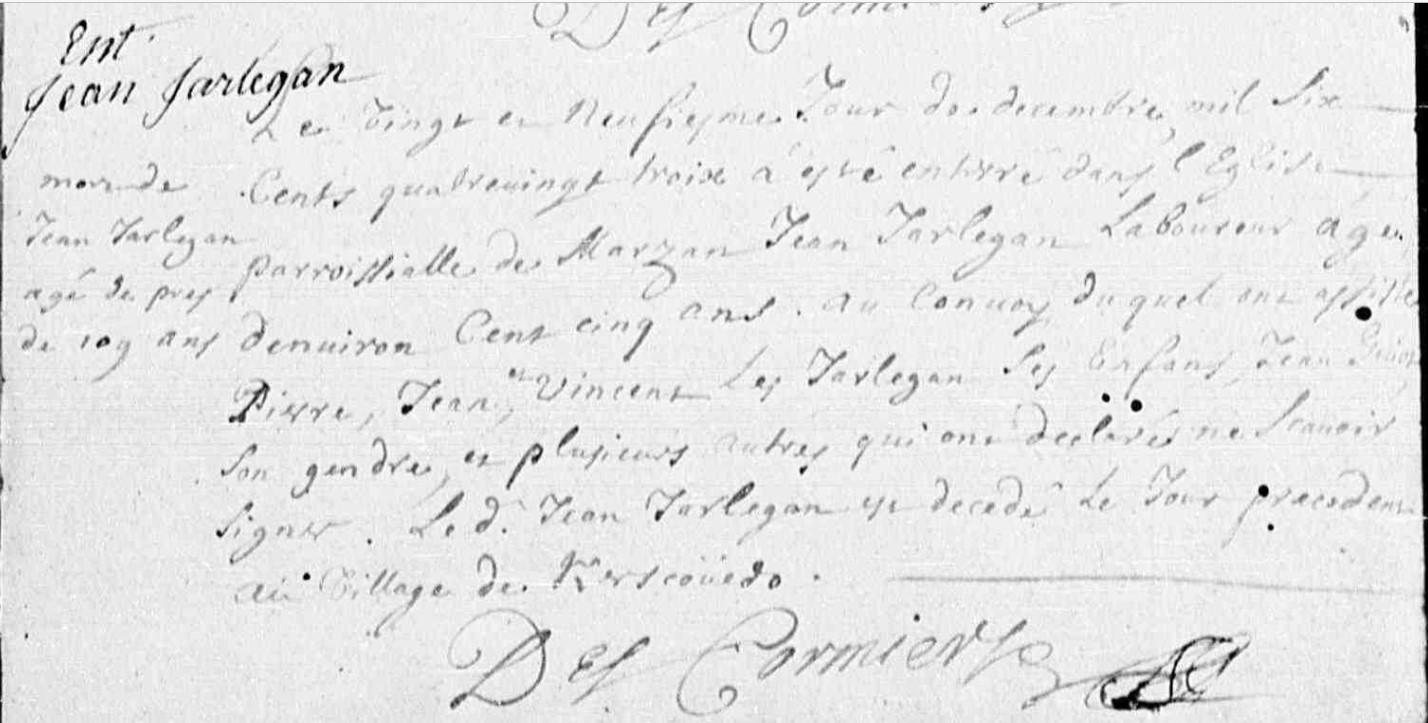 Des Cormiers
Ent.
Jean Jarlegan
Le vingt et neufiesme Jour de decembre mil six
Cents quatrevingt troix a esté enterré dans l'Eglise
parroissialle de Marzan Jean Jarlegan Laboureur age
denuiron Cent cinq ans. au Conuoy duquel ont assisté
Pierre, Jean, et Vincent Les Jarlegan ses Enfans, Jean
son gendre, et plusieurs autres qui ont declarés ne scauoir
signer. Le d. Jean Jarlegan est decedé Le Jour precedent
au Village de Kerscoüedo.
mort de
Jean Jarlegan
agé de pres
de 109 ans
Des Cormiers